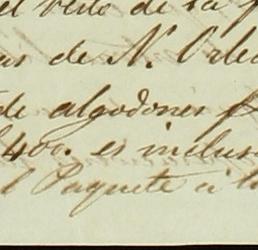 el resto de la
de N. Orle
de algodones
400. es inclus
l Paquete á l